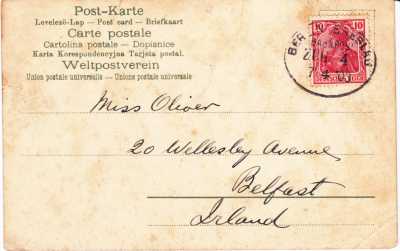 Post-Karte
Levelező-Lap — Post card — Briefkaart
Carte postale
Cartolina postale — Dopisnice
Karta Korespondencyjna Tarjeta postal.
Weltpostverein
Union postale universelle — Unione postale universale
10 10
Miss Oliver
20 Wellesley Avenue,
Belfast
Irland